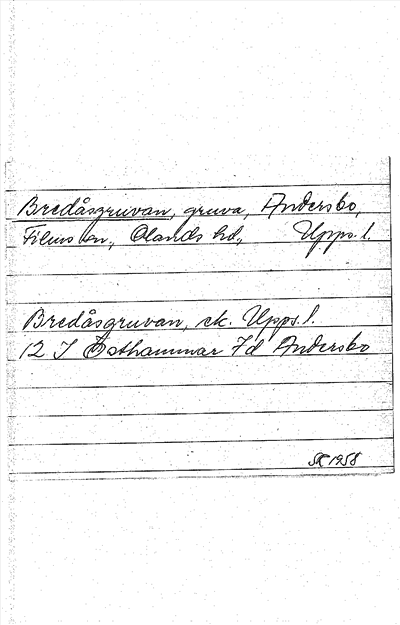 Bredåsgruvan, gruva, Andersbo,
Films sn, Olands hd, Upps. l.
Bredåsgruvan, ek. Upps. l.
12 I Östhammar 7d Andersbo
SK 1958